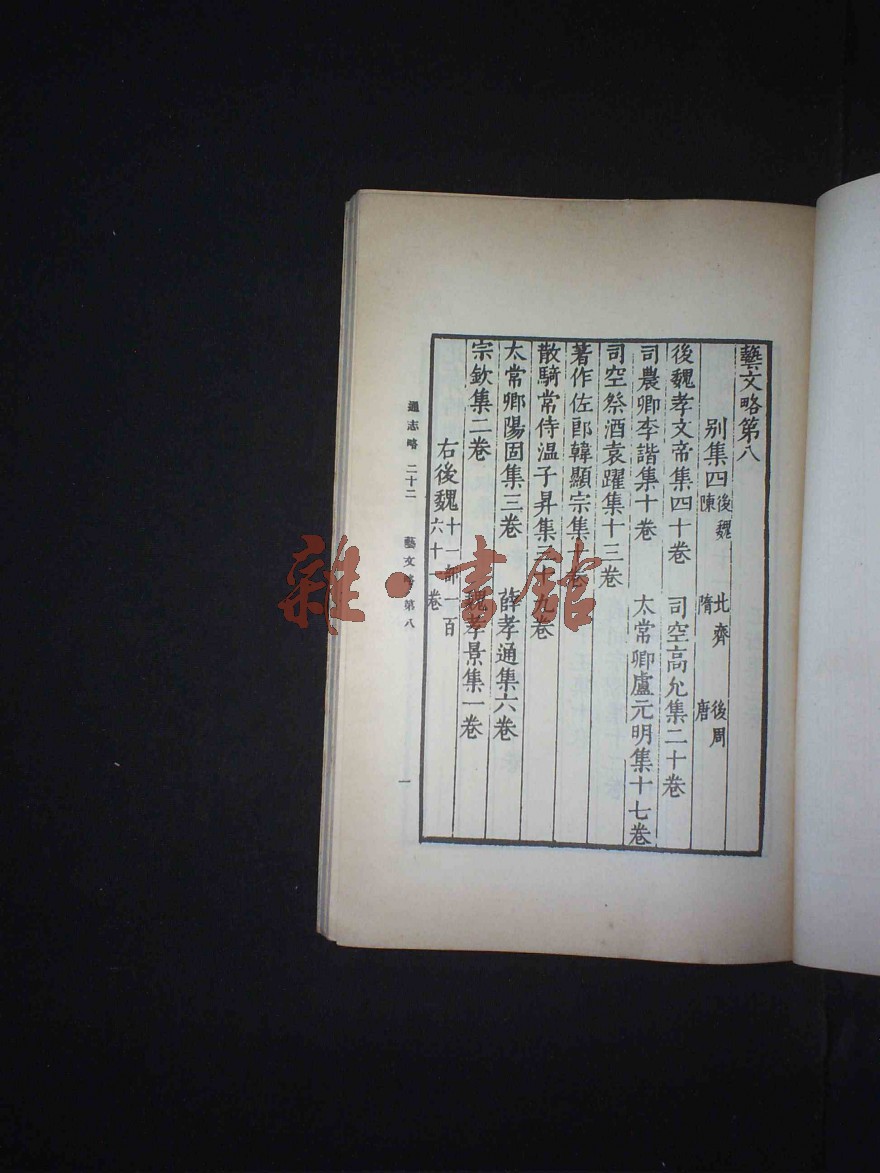 藝文略第八
別集四 後魏 陳 北齊 隋 後周 唐
後魏孝文帝集四十卷 司空高允集二十卷
司農卿李諧集十卷 太常卿盧元明集十七卷
司空祭酒袁躍集十三卷
著作佐郎韓顯宗集卷
散騎常侍温子昇集三十九卷
太常卿陽固集三卷 薛孝通集六卷
宗欽集二卷 魏孝景集一卷
右後魏十一部一百六十一卷
通志略 二十二 藝文略第八 一
雜·書館